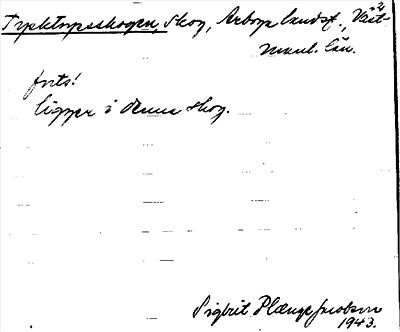 Trpktorpsskogen, skog, Arboga landsf., Väst-
manl. län.
forts!
ligger i denna skog.
Sigbrit Plænge Jacobson
1943.